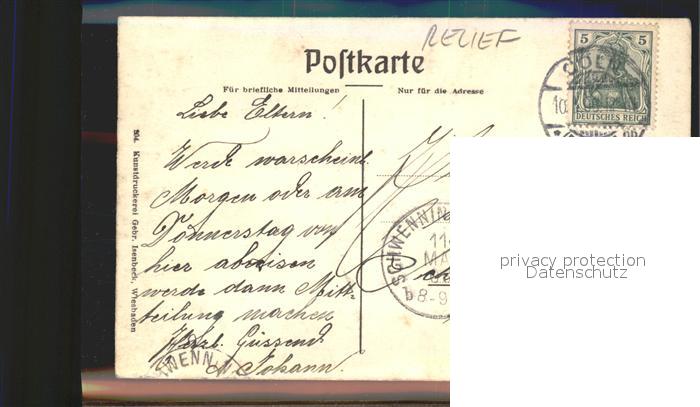 RELIEF
5 5
DEUTSCHES REICH
CÖLN
Postkarte
Für briefliche Mitteilungen
Nur für die Adresse
Liebe Eltern!
Werde warscheinl.
Morgen oder am
Donnerstag von
hier abreisen
werde dann Mitt-
teilung machen
Herzl. Grüssend
Johann.
SCHWENNIN
11
MA
8-9
WENNIN
504. Kunstdruckerei Gebr. Isenbeck, Wiesbaden
privacy protection
Datenschutz